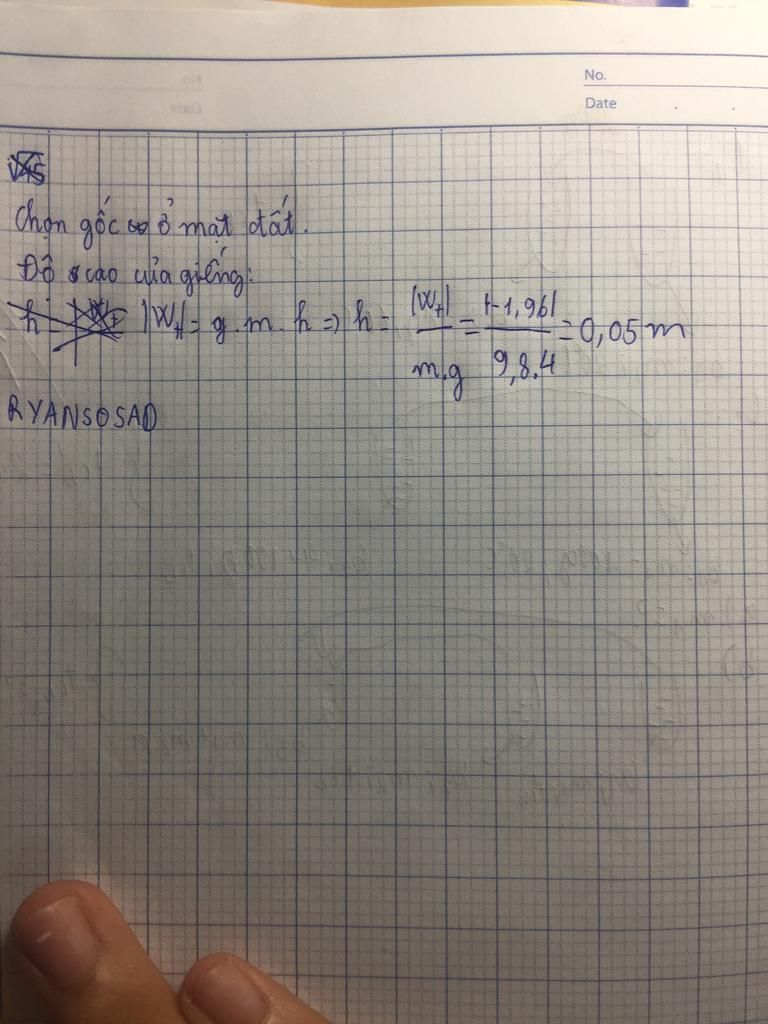 No.
Date
Chọn gốc ở mặt đất.
Độ cao của giếng:
|Wt| = g.m.h => h = |Wt| / m.g = |-1,96| / 9,8.4 = 0,05m
RYANSOSAD